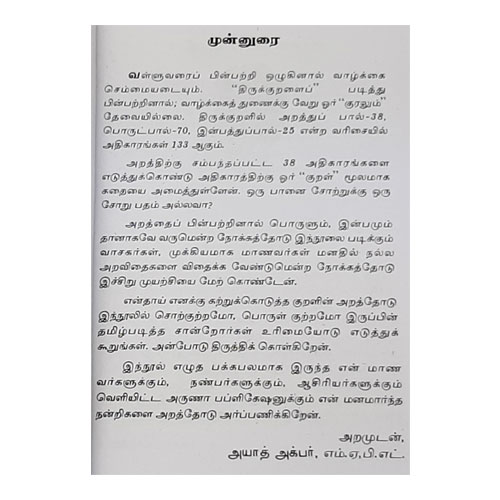 முன்னுரை
வள்ளுவரைப் பின்பற்றி ஒழுகினால் வாழ்க்கை
செம்மையடையும். "திருக்குறளைப்" படித்து
பின்பற்றினால்; வாழ்க்கைத் துணைக்கு வேறு ஓர் "குரலும்"
தேவையில்லை. திருக்குறளில் அறத்துப் பால்-38,
பொருட்பால்-70, இன்பத்துப்பால்-25 என்ற வரிசையில்
அதிகாரங்கள் 133 ஆகும்.
அறத்திற்கு சம்பந்தப்பட்ட 38 அதிகாரங்களை
எடுத்துக்கொண்டு அதிகாரத்திற்கு ஓர் "குறள்" மூலமாக
கதையை அமைத்துள்ளேன். ஒரு பானை சோற்றுக்கு ஒரு
சோறு பதம் அல்லவா?
அறத்தைப் பின்பற்றினால் பொருளும், இன்பமும்
தானாகவே வருமென்ற நோக்கத்தோடு இந்நூலை படிக்கும்
வாசகர்கள், முக்கியமாக மாணவர்கள் மனதில் நல்ல
அறவிதைகளை விதைக்க வேண்டுமென்ற நோக்கத்தோடு
இச்சிறு முயற்சியை மேற் கொண்டேன்.
என்தாய் எனக்கு கற்றுக்கொடுத்த குறளின் அறத்தோடு
இந்நூலில் சொற்குற்றமோ, பொருள் குற்றமோ இருப்பின்
தமிழ்படித்த சான்றோர்கள் உரிமையோடு எடுத்துக்
கூறுங்கள். அன்போடு திருத்திக் கொள்கிறேன்.
இந்நூல் எழுத பக்கபலமாக இருந்த என் மாண
வர்களுக்கும், நண்பர்களுக்கும், ஆசிரியர்களுக்கும்
வெளியிட்ட அருணா பப்ளிகேஷனுக்கும் என் மனமார்ந்த
நன்றிகளை அறத்தோடு அர்ப்பணிக்கிறேன்.
அறமுடன்,
அயாத் அக்பர், எம்.ஏ,பி.எட்.